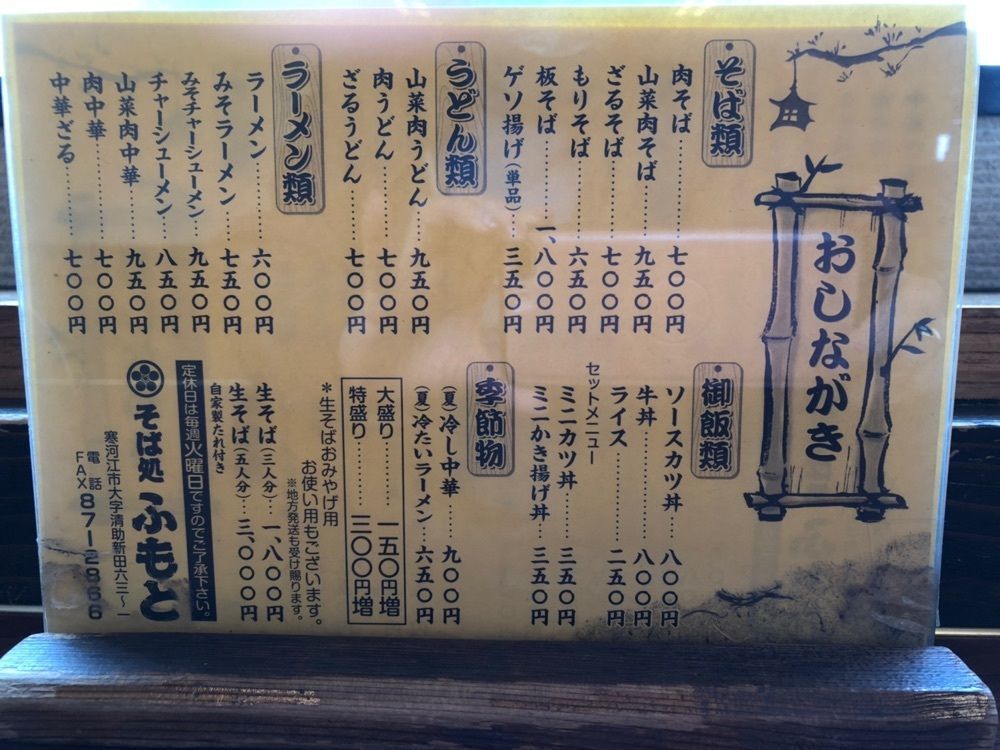 おしながき
そば類
肉そば……七〇〇円
山菜肉そば……九五〇円
ざるそば……七〇〇円
もりそば……六五〇円
板そば……一、八〇〇円
ゲソ揚げ(単品)……三五〇円
うどん類
山菜肉うどん……九五〇円
肉うどん……七〇〇円
ざるうどん……七〇〇円
ラーメン類
ラーメン……六〇〇円
みそラーメン……七五〇円
みそチャーシューメン……九五〇円
チャーシューメン……八五〇円
山菜肉中華……九五〇円
肉中華……七〇〇円
中華ざる……七〇〇円
御飯類
ソースカツ丼……八〇〇円
牛丼……八〇〇円
ライス……二五〇円
セットメニュー
ミニカツ丼……三五〇円
ミニかき揚げ丼……三五〇円
季節物
(夏)冷し中華……九〇〇円
(夏)冷たいラーメン……六五〇円
大盛り……一五〇円増
特盛り……三〇〇円増
*生そばおみやげ用
お使い用もございます。
※地方発送も受け賜ります。
生そば(三人分)…一、八〇〇円
生そば(五人分)…三、〇〇〇円
自家製たれ付き
定休日は毎週火曜日ですのでご了承下さい。
そば処ふもと
寒河江市大字清助新田六三〜一
電話
FAX 87-2866